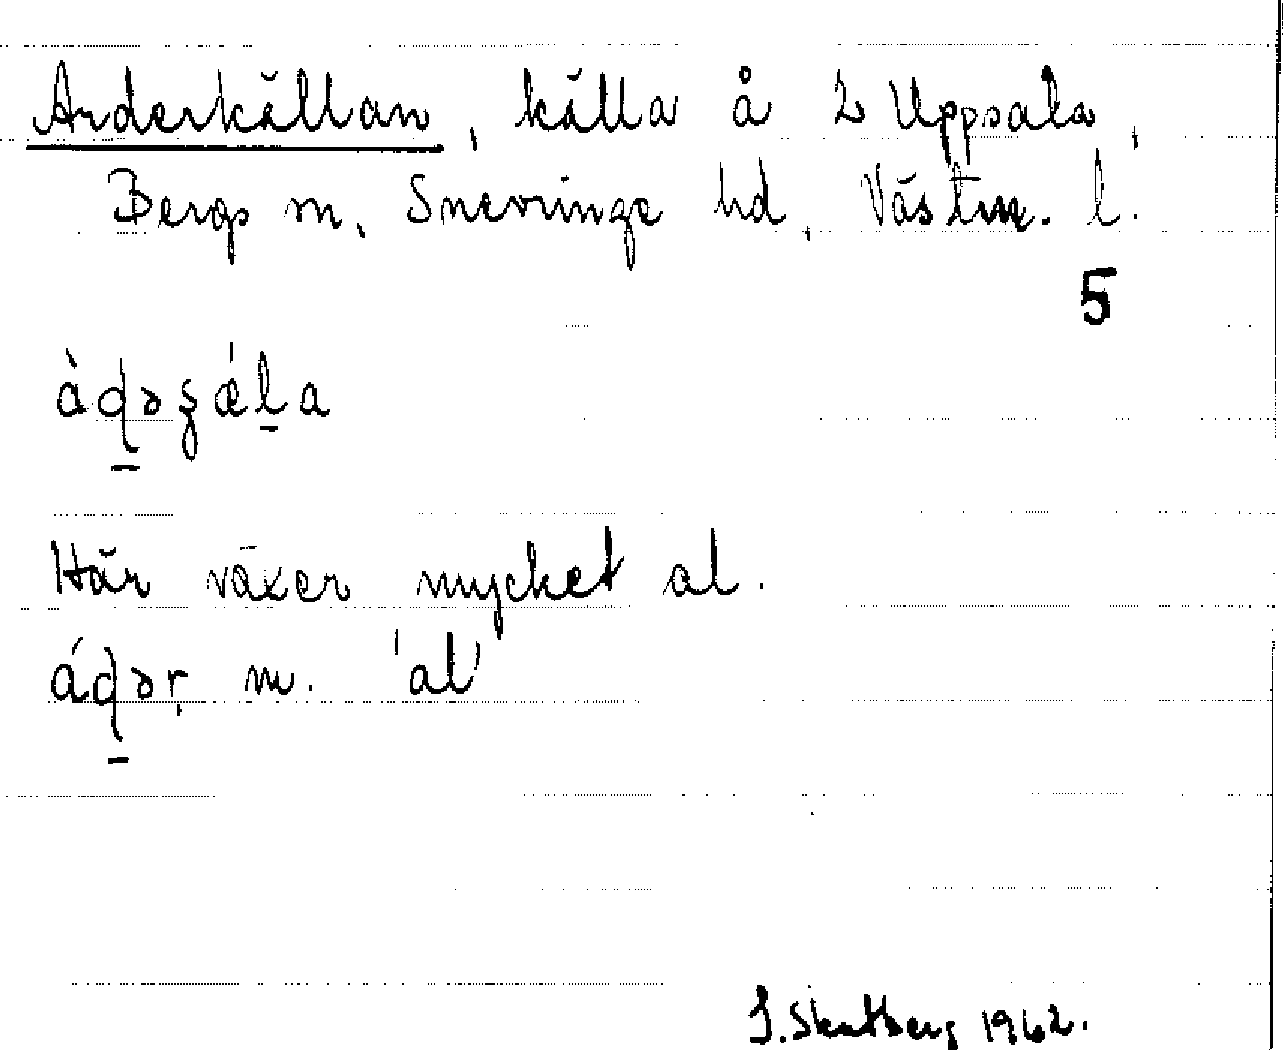 Arderkällan, källa å 2 Uppsala,
Bergs sn, Snevringe hd, Västm. l.
5
àḏəʂǽḻa
Här växer mycket al.
áḏəṛ m. 'al'
1962.